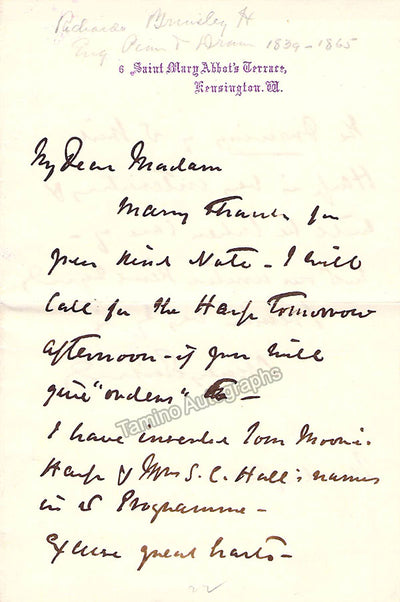 Richards Brinsley H
Eng 1839-1865
6 Saint Mary Abbot's Terrace,
Kensington. W.
My Dear Madam
Many Thanks for
your kind Note - I will
Call for the Harp Tomorrow
afternoon - if you will
give "orders" to -
I have inserted Tom Moore's
Harp & Mrs S. C. Hall's names
in Programme -
Excuse great haste -
Tamino Autographs